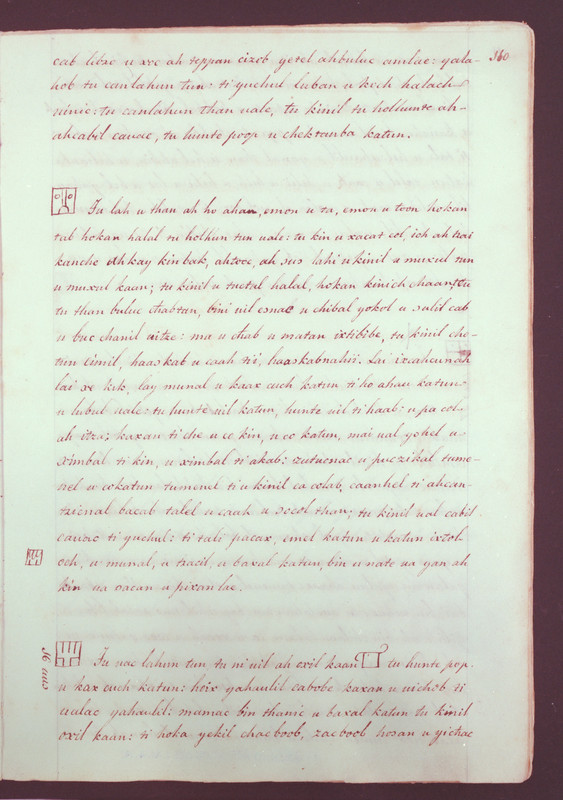 360
cab libre u xoc ah teppan cizob yetel ahbuluc amlae: yala-
hob tu canlahun tun: ti yuchul luban u kech halach
uinic: tu canlahun than uale, tu kinil tu holhunte ah-
ahcabil cauac, tu hunte poop u chektanba katun.
Tu lah u than ah ho ahau, emon u ta, emon u toon hokan
tab hokan halal tu holhun tun uale: tu kin u xacat col, ich ah tzai
kanche ahkay kin bak, ahtoce, ah sus lahi u kinil u muxul tun
u muxul kaan; tu kinil u tuctal halal, hokan kinich chaante, tu
tu than buluc chabtan, bini uil esnac u chibal yokol u salil cab
u buc chanil uitze: ma u chab u matan ixtibibe, tu kinil che-
tun cimil, haaskab u caah tii, haaskabnahii. Lai ixcahcunah
lai xe kik, lay munal u kaax cuch katun ti ho ahau katun
u lubul uale: tu hunte uil katun, hunte uil ti haab: u pa col
ah itza; kaxan ti che u co kin, u co katun, mai ual yohel u
ximbal ti kin, u ximbal ti akab: zutucnac u puczikal tume-
nel u cokatun tumenel ti u kinil ca colub, caanhel ti ahcan-
tzicnal bacab talel u caah u socol than; tu kinil ual cabil
cauac ti yuchul: ti tali pacax, emel katun u katun ixtol
och, u munal, u tzacil, u baxal katun, bin u nate ua yan ah
kin ua oacan u pixanlae.
16 cuus
Tu uac lahun tun, tu ni uil ah oxil kaan tu hunte pop.
u kax cuch katun: heix yahaulil cabobe kaxan u uichob ti
cualac yahaulil: mamac bin thanic u baxal katun tu kinil
oxil kaan: ti hoka yekil chacboob, zacboob hosan u yichac